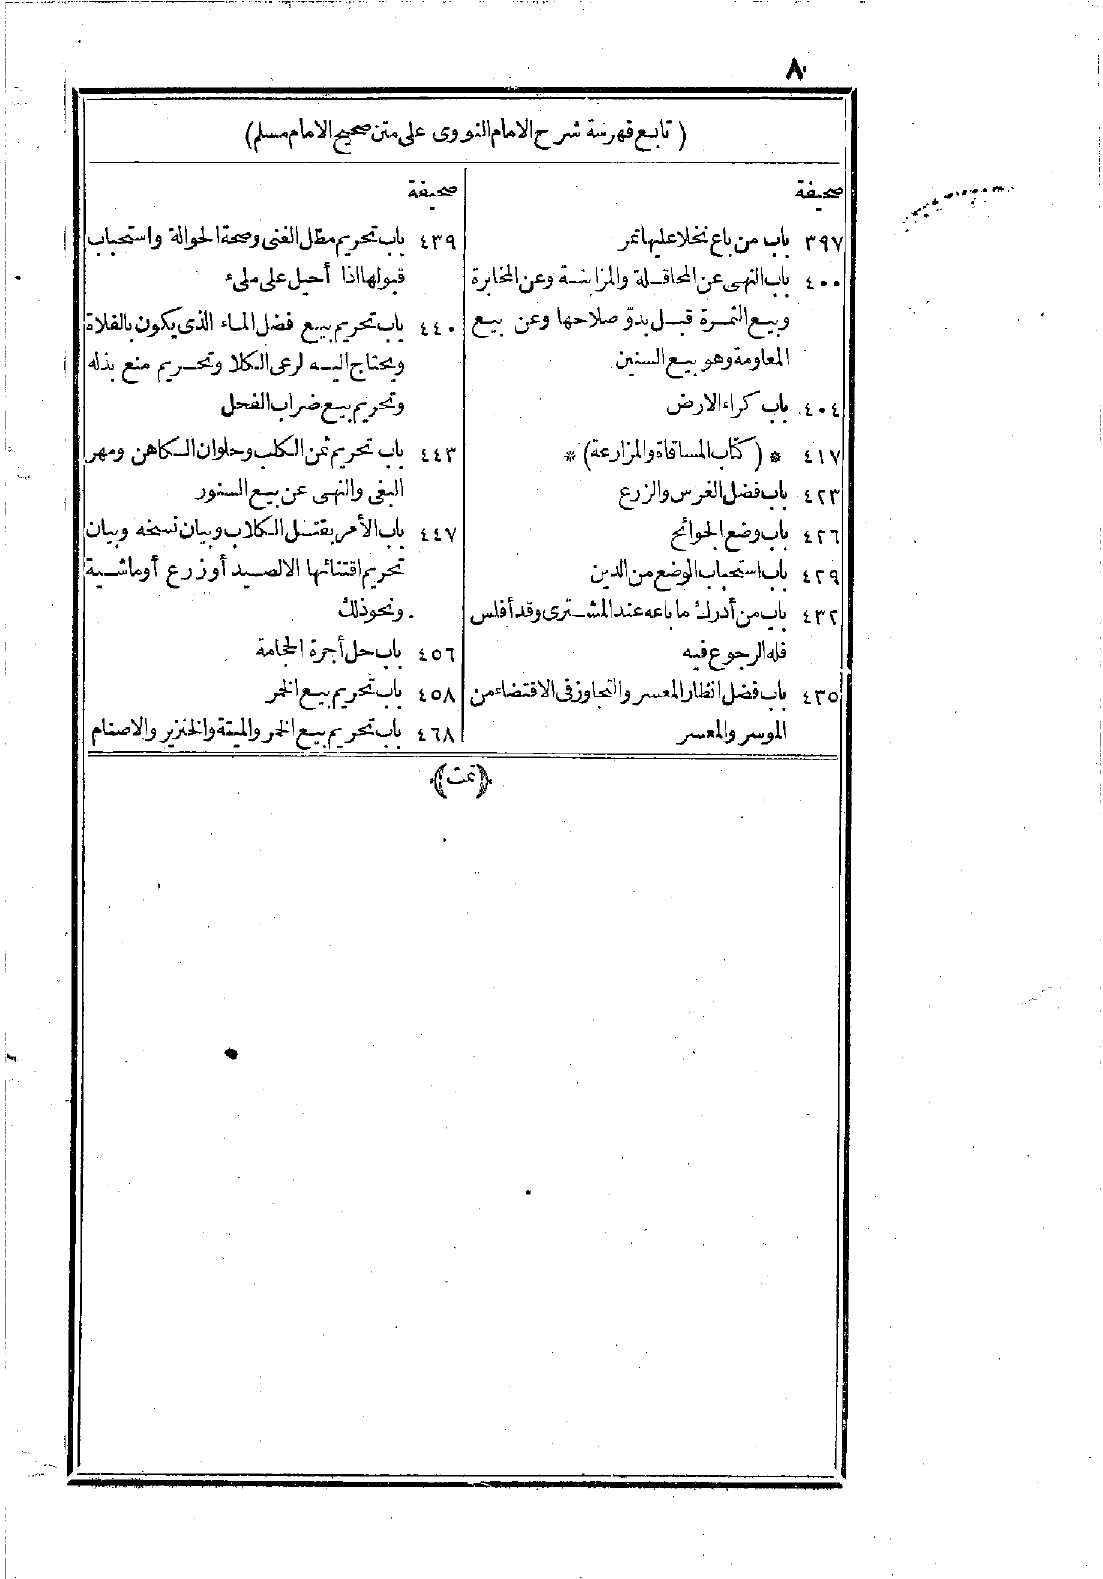 ٨
(تابع فهرسة شرح الامام النووى على متن صحيح الامام مسلم)
صحيفة
٣٩٧ باب من باع نخلا عليها تمر
٤٠٠ باب النهى عن المحاقلة والمزابنة وعن المخابرة
وبيع الثمرة قبل بدوّ صلاحها وعن بيع
المعاومة وهو بيع السنين
٤٠٤ باب كراء الارض
٤١٧ * (كتاب المساقاة والمزارعة) *
٤٢٣ باب فضل الغرس والزرع
٤٢٦ باب وضع الجوائح
٤٢٩ باب استحباب الوضع من الدين
٤٣٢ باب من أدرك ما باعه عند المشترى وقد أفلس
فله الرجوع فيه
٤٣٥ باب فضل انظار المعسر والتجاوز فى الاقتضاء من
الموسر والمعسر
صحيفة
٤٣٩ باب تحريم مطل الغنى وصحة الحوالة واستحباب
قبولها اذا أحيل على ملىء
٤٤٠ باب تحريم بيع فضل الماء الذى يكون بالفلاة
ويحتاج اليه لرعى الكلا وتحريم منع بذله
وتحريم بيع ضراب الفحل
٤٤٣ باب تحريم ثمن الكلب وحلوان الكاهن ومهر
البغى والنهى عن بيع السنور
٤٤٧ باب الأمر بقتل الكلاب وبيان نسخه وبيان
تحريم اقتنائها الا لصيد أو زرع أو ماشية
ونحو ذلك
٤٥٦ باب حل أجرة الحجامة
٤٥٨ باب تحريم بيع الخمر
٤٦٨ باب تحريم بيع الخمر والميتة والخنزير والاصنام
(تمت)